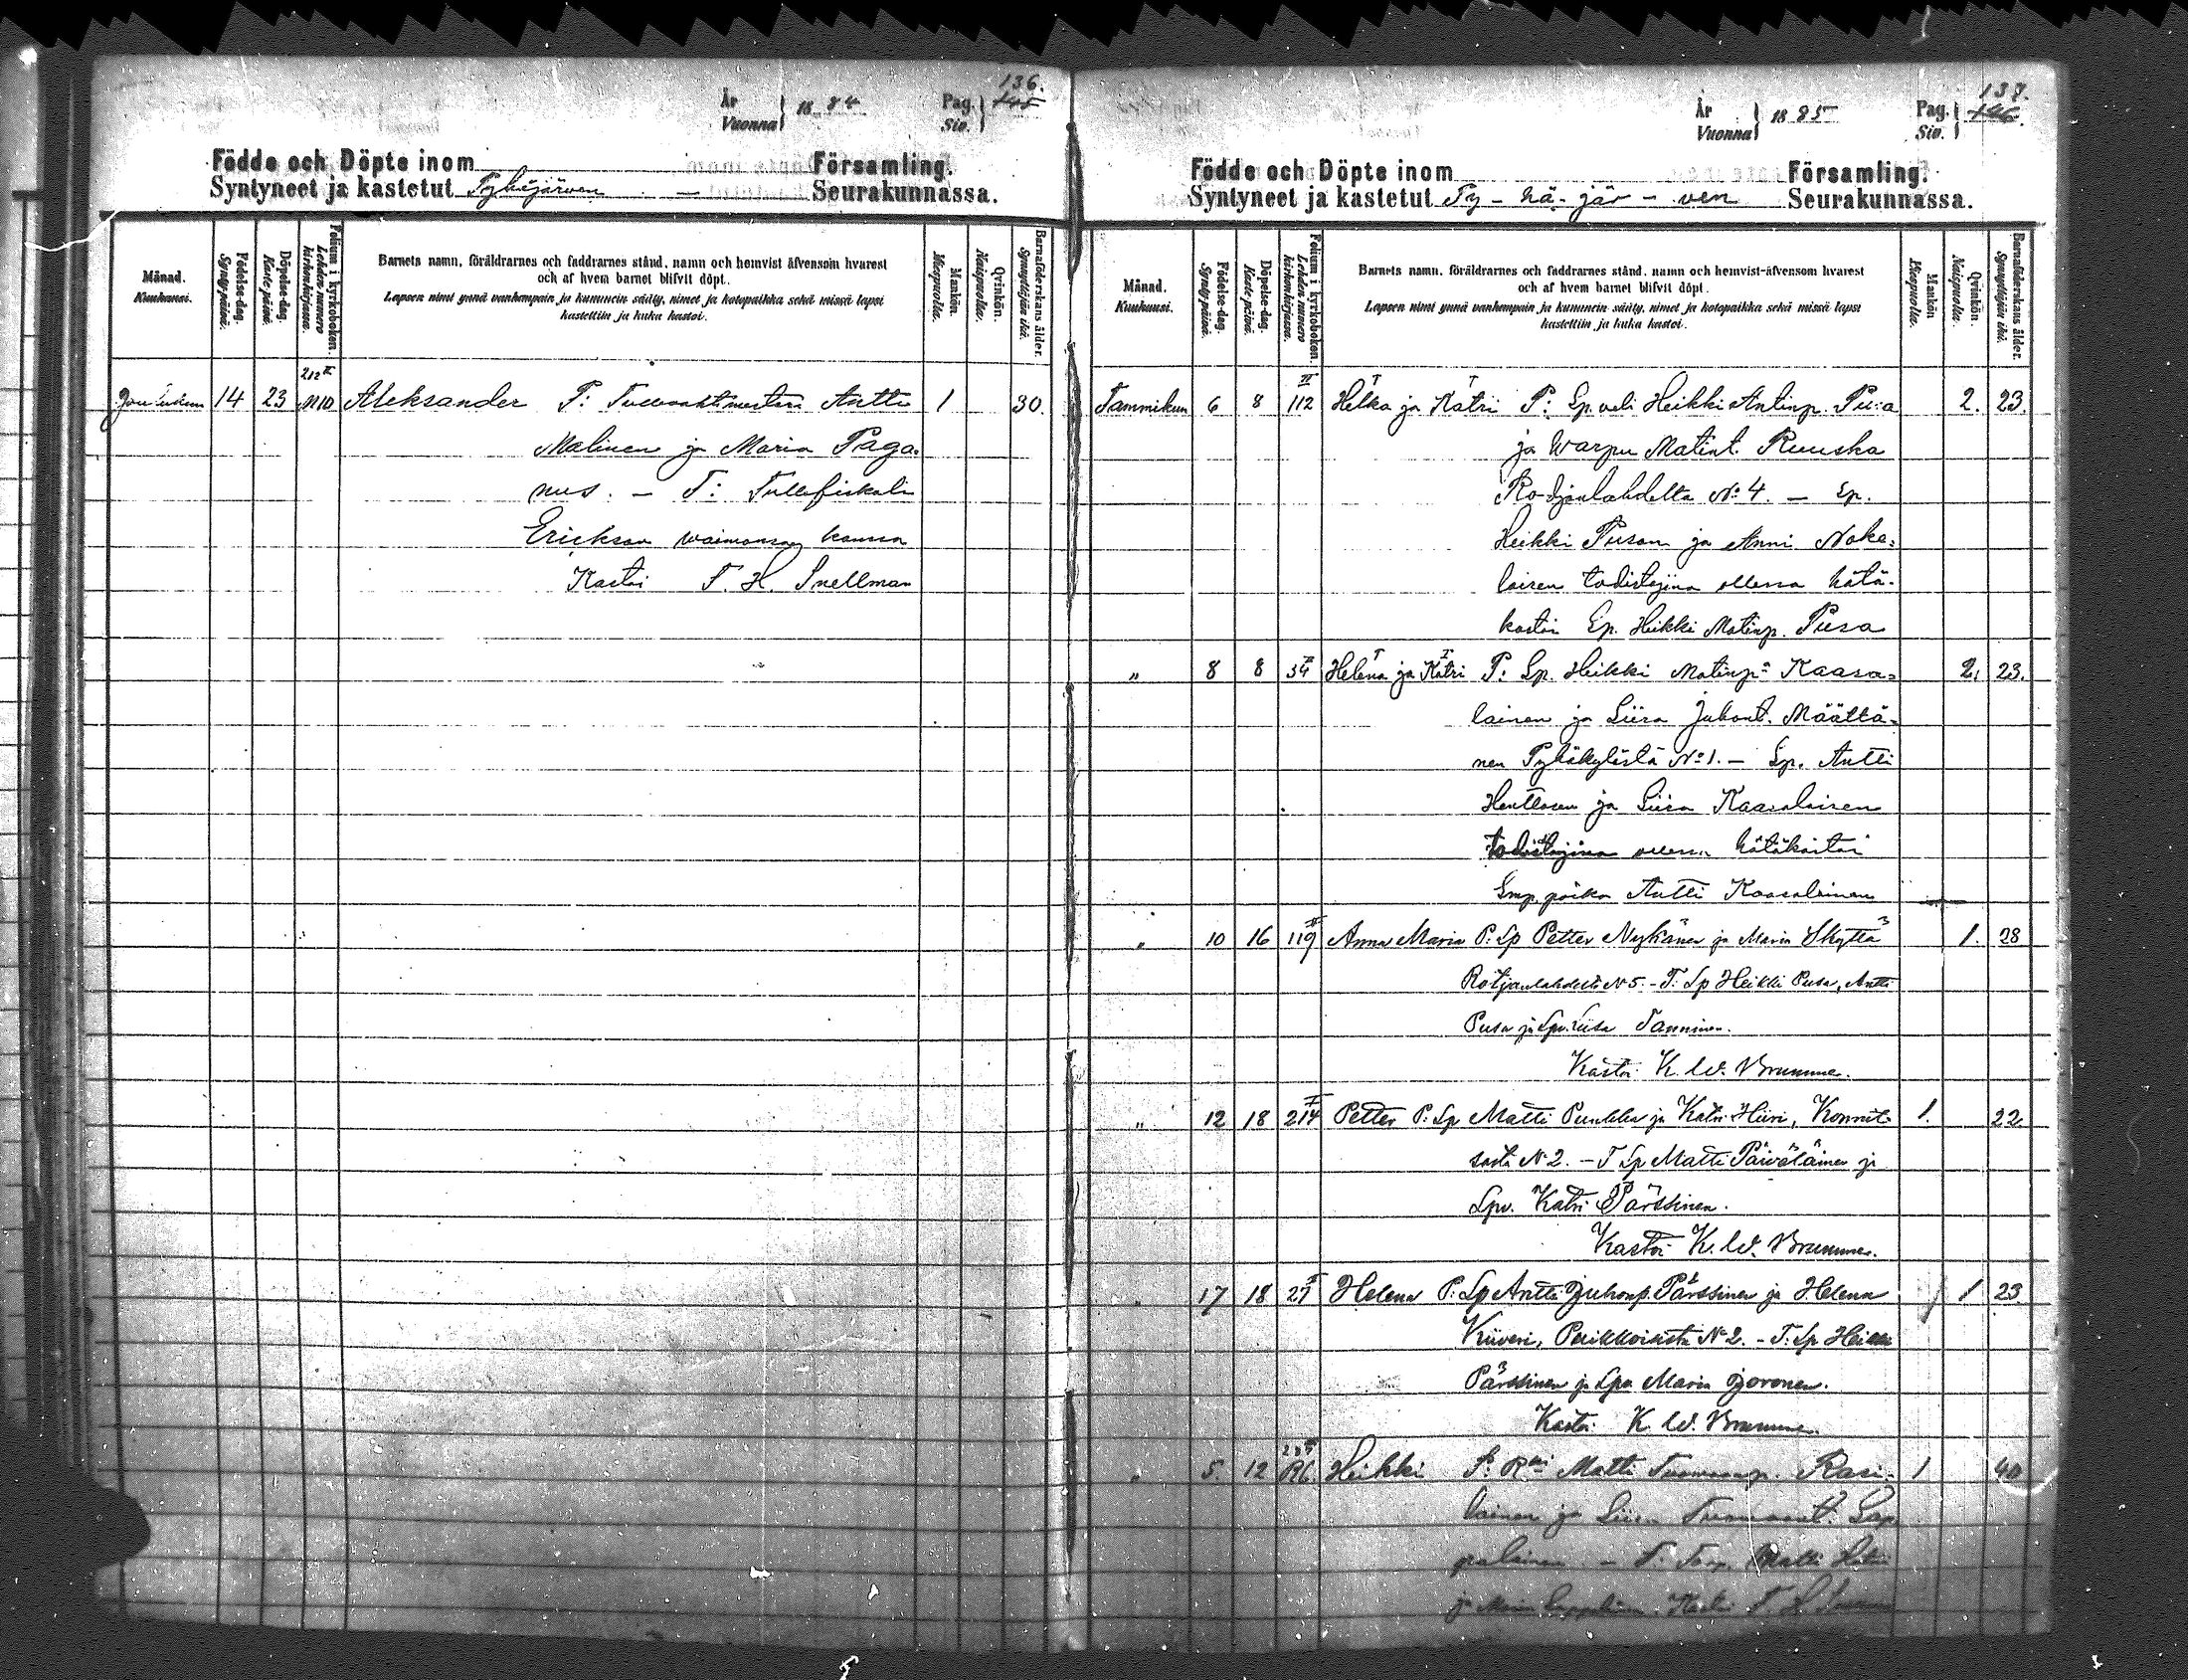 136.
År
Vuonna
18 84
Pag.
Siv.
145
Födde och Döpte inom Församling.
Syntyneet ja kastetut Pyhäjärven Seurakunnassa.
Månad.
Kuukausi.
Födelse-dag.
Synty-päivä.
Döpelse-dag.
Kaste-päivä.
Folium i kyrkoboken.
Lehden numero kirkonkirjassa.
Barnets namn, föräldrarnes och faddrarnes stånd, namn och hemvist äfvensom hvarest
och af hvem barnet blifvit döpt.
Lapsen nimi ynnä vanhempain ja kummein sääty, nimet ja kotopaikka sekä missä lapsi
kastettiin ja kuka kastoi.
Mankön.
Miespuolia.
Qvinkön.
Naispuolia.
Barnaföderskans ålder.
Synnyttäjän ikä.
212 II
Joulukuu 14 23 N10 Aleksander P: Tullivahtimestari Antti 1 30.
Malinen ja Maria Paga-
nus. – T: Tullifiskali
Erickson waimonsa kanssa
Kastoi F. H. Snellman
137.
År
Vuonna
18 85
Pag.
Siv.
146.
Födde och Döpte inom Församling.
Syntyneet ja kastetut Py-hä-jär-ven Seurakunnassa.
Månad.
Kuukausi.
Födelse-dag.
Synty-päivä.
Döpelse-dag.
Kaste-päivä.
Folium i kyrkoboken.
Lehden numero kirkonkirjassa.
Barnets namn, föräldrarnes och faddrarnes stånd, namn och hemvist äfvensom hvarest
och af hvem barnet blifvit döpt.
Lapsen nimi ynnä vanhempain ja kummein sääty, nimet ja kotopaikka sekä missä lapsi
kastettiin ja kuka kastoi.
Mankön
Miespuolia.
Qvinkön.
Naispuolia.
Barnaföderskans ålder.
Synnyttäjän ikä.
Tammikuu 6 8 II 112 Helka ja Katri P: Sp. veli Heikki Antinp. Pusa 2. 23.
ja Warpu Matint. Ruuska
Rotjanlahdelta No 4. – Sp.
Heikki Pusan ja Anni Noka-
laisen todistajina ollessa hätä-
kastoi Sp. Heikki Matinp. Pusa
" 8 8 34 Helena ja Katri P: Sp. Heikki Matinp. Kaasa- 2. 23.
lainen ja Liisa Juhont. Määttä-
nen Pyhäkylästä No 1. – Sp. Antti
Henttosen ja Liisa Kaasalaisen
todistajina ollessa hätäkastoi
poika Antti Kaasalainen
" 10 16 II 119 Anna Maria P: Lp Petter Nykänen ja Maria Skyttä 1. 28
Rotjanlahdelta N 5. – T: Lp Heikki Pusa, Antti
Pusa ja Lpv. Liisa Tanninen.
Kastoi K. W. Brummer.
" 12 18 I 214 Petter P: Lp Matti Puukka ja Katri Hiiri, Konnit- 1. 22.
sasta N 2. – T Lp Matti Päiväläinen ja
Lpv. Katri Pärssinen.
Kastoi K. W. Brummer.
" 17 18 27 Helena P: Lp Antti Juhonp. Pärssinen ja Helena 1 23
Kiiveri, Puikkoisista N 2. – T: Lp Heikki
Pärssinen ja Lpv Maria Joronen.
Kastoi K. W. Brummer.
" 5. 12 Heikki P: Matti Tuomaanp. Rasi- 1 40
lainen ja Liisa Tuomaant. Lap-
palainen – T: Matti
ja Maria Kastoi F. H. Snellman